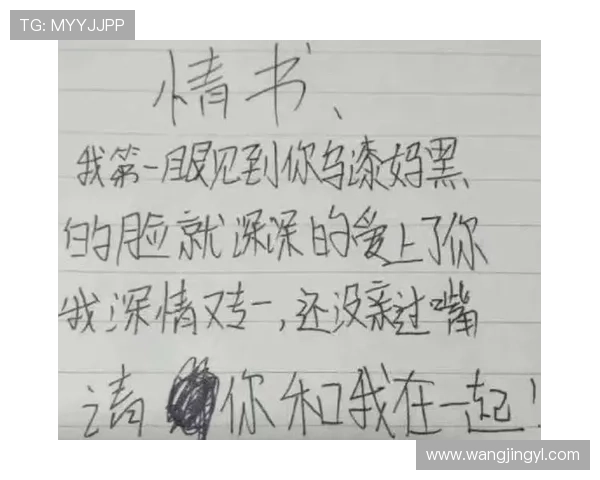 TG: MYYJJPP
情书、
我第一眼见到你乌漆妈黑
的脸就深深的爱上了你
我深情又专一,还没亲过嘴
请你和我在一起!
www.wangjingyl.com